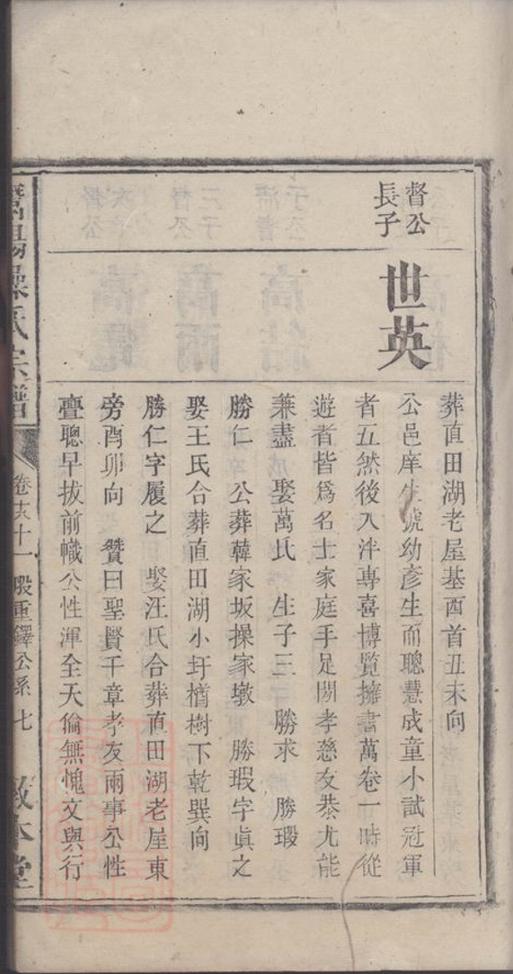 督公
長子
世英
葬直田湖老屋基酉首丑未向
公邑庠生號幼彥生而聰慧成童小試冠軍
者五然後入泮專喜博覽擁書萬卷一時從
遊者皆爲名士家庭手足間孝慈友恭尤能
兼盡 娶萬氏 生子三 勝求 勝瑕
勝仁 公葬韓家坂操家墩 勝瑕字眞之
娶王氏合葬直田湖小圩樹下乾巽向
勝仁字履之 娶汪氏合葬直田湖老屋東
旁酉卯向 贊曰聖賢千章孝友兩事公性
聰早拔前幟公性渾全天倫無愧文與行
操氏宗譜 卷 十一 重鐸公系 七 敦本堂